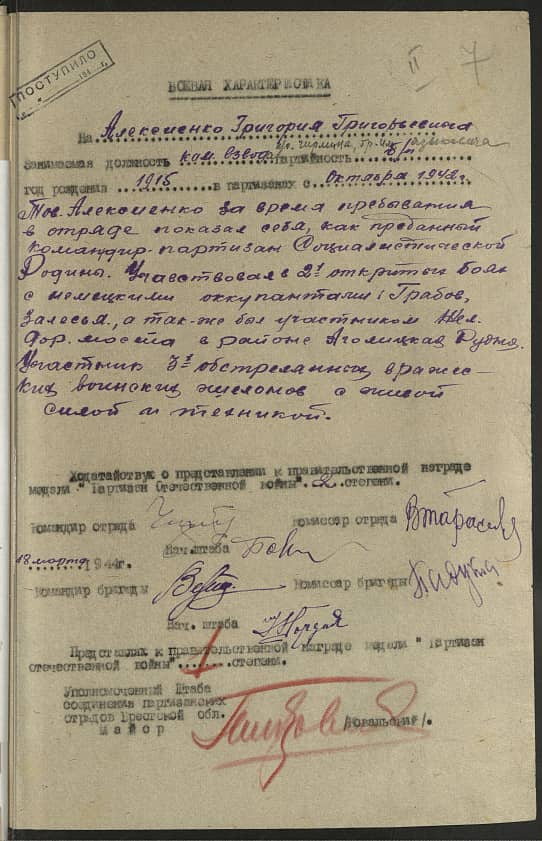 ПОСТУПИЛО
II 7
БОЕВАЯ ХАРАКТЕРИСТИКА
На Алексиенко Григория Григорьевича
Занимаемая должность ком. взвода партийность б/п
год рождения 1915 в партизанах с октября 1942 г.
Тов. Алексиенко за время пребывания
в отряде показал себя, как преданный
командир-партизан Социалистической
Родины. Учавствовал в 2х открытых боях
с немецкими оккупантами: Грабов,
Залесья, а так-же был участником жел.
дор. моста в районе Аголицкая Рудня.
Участник 3х обстрелянных вражес-
ких воинских эшелонов с живой
силой и техникой.
Ходатайствую о представлении к правительственной награде
медали "Партизан Отечественной войны" 2 степени.
Командир отряда Комиссар отряда ВТарасов
Нач. штаба
18 марта 1944г.
Командир бригады Комиссар бригады
Нач. штаба
Представлях к правительственной награде медали "Партизан
отечественной войны" 1 степени.
Уполномоченный Штаба
соединения партизанских
отрядов Брестской обл.
Майор /Ковальский/.